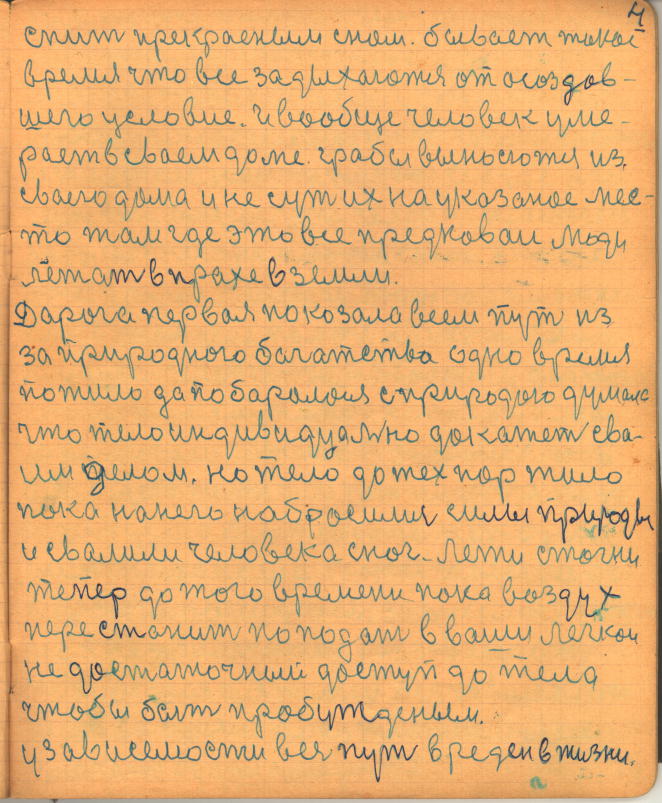 4
спит прекрасным сном. бывает такое
время что все задыхаются от создов-
шего условие. И вообще человек уме-
рает в своем доме. грабы выносются из
сваего дома и не сут их на указаное мес-
то там где это все предковаи люди
летат в прахе в земли.
Дарога первая показала всем пут из
за природного багатства одно время
пожило да поборолося с природою думала
что тело индивидуално докажет сва-
им делом. но тело до тех пор жило
пока на него набросились силы природы
и свалили человека с ног. Лежи стогни
тепер до того времени пока воздух
перестанит поподат в ваши легкои
не достаточный доступ до тела
чтобы быт пробужденым.
у зависемости вея пут вреден в жизни.